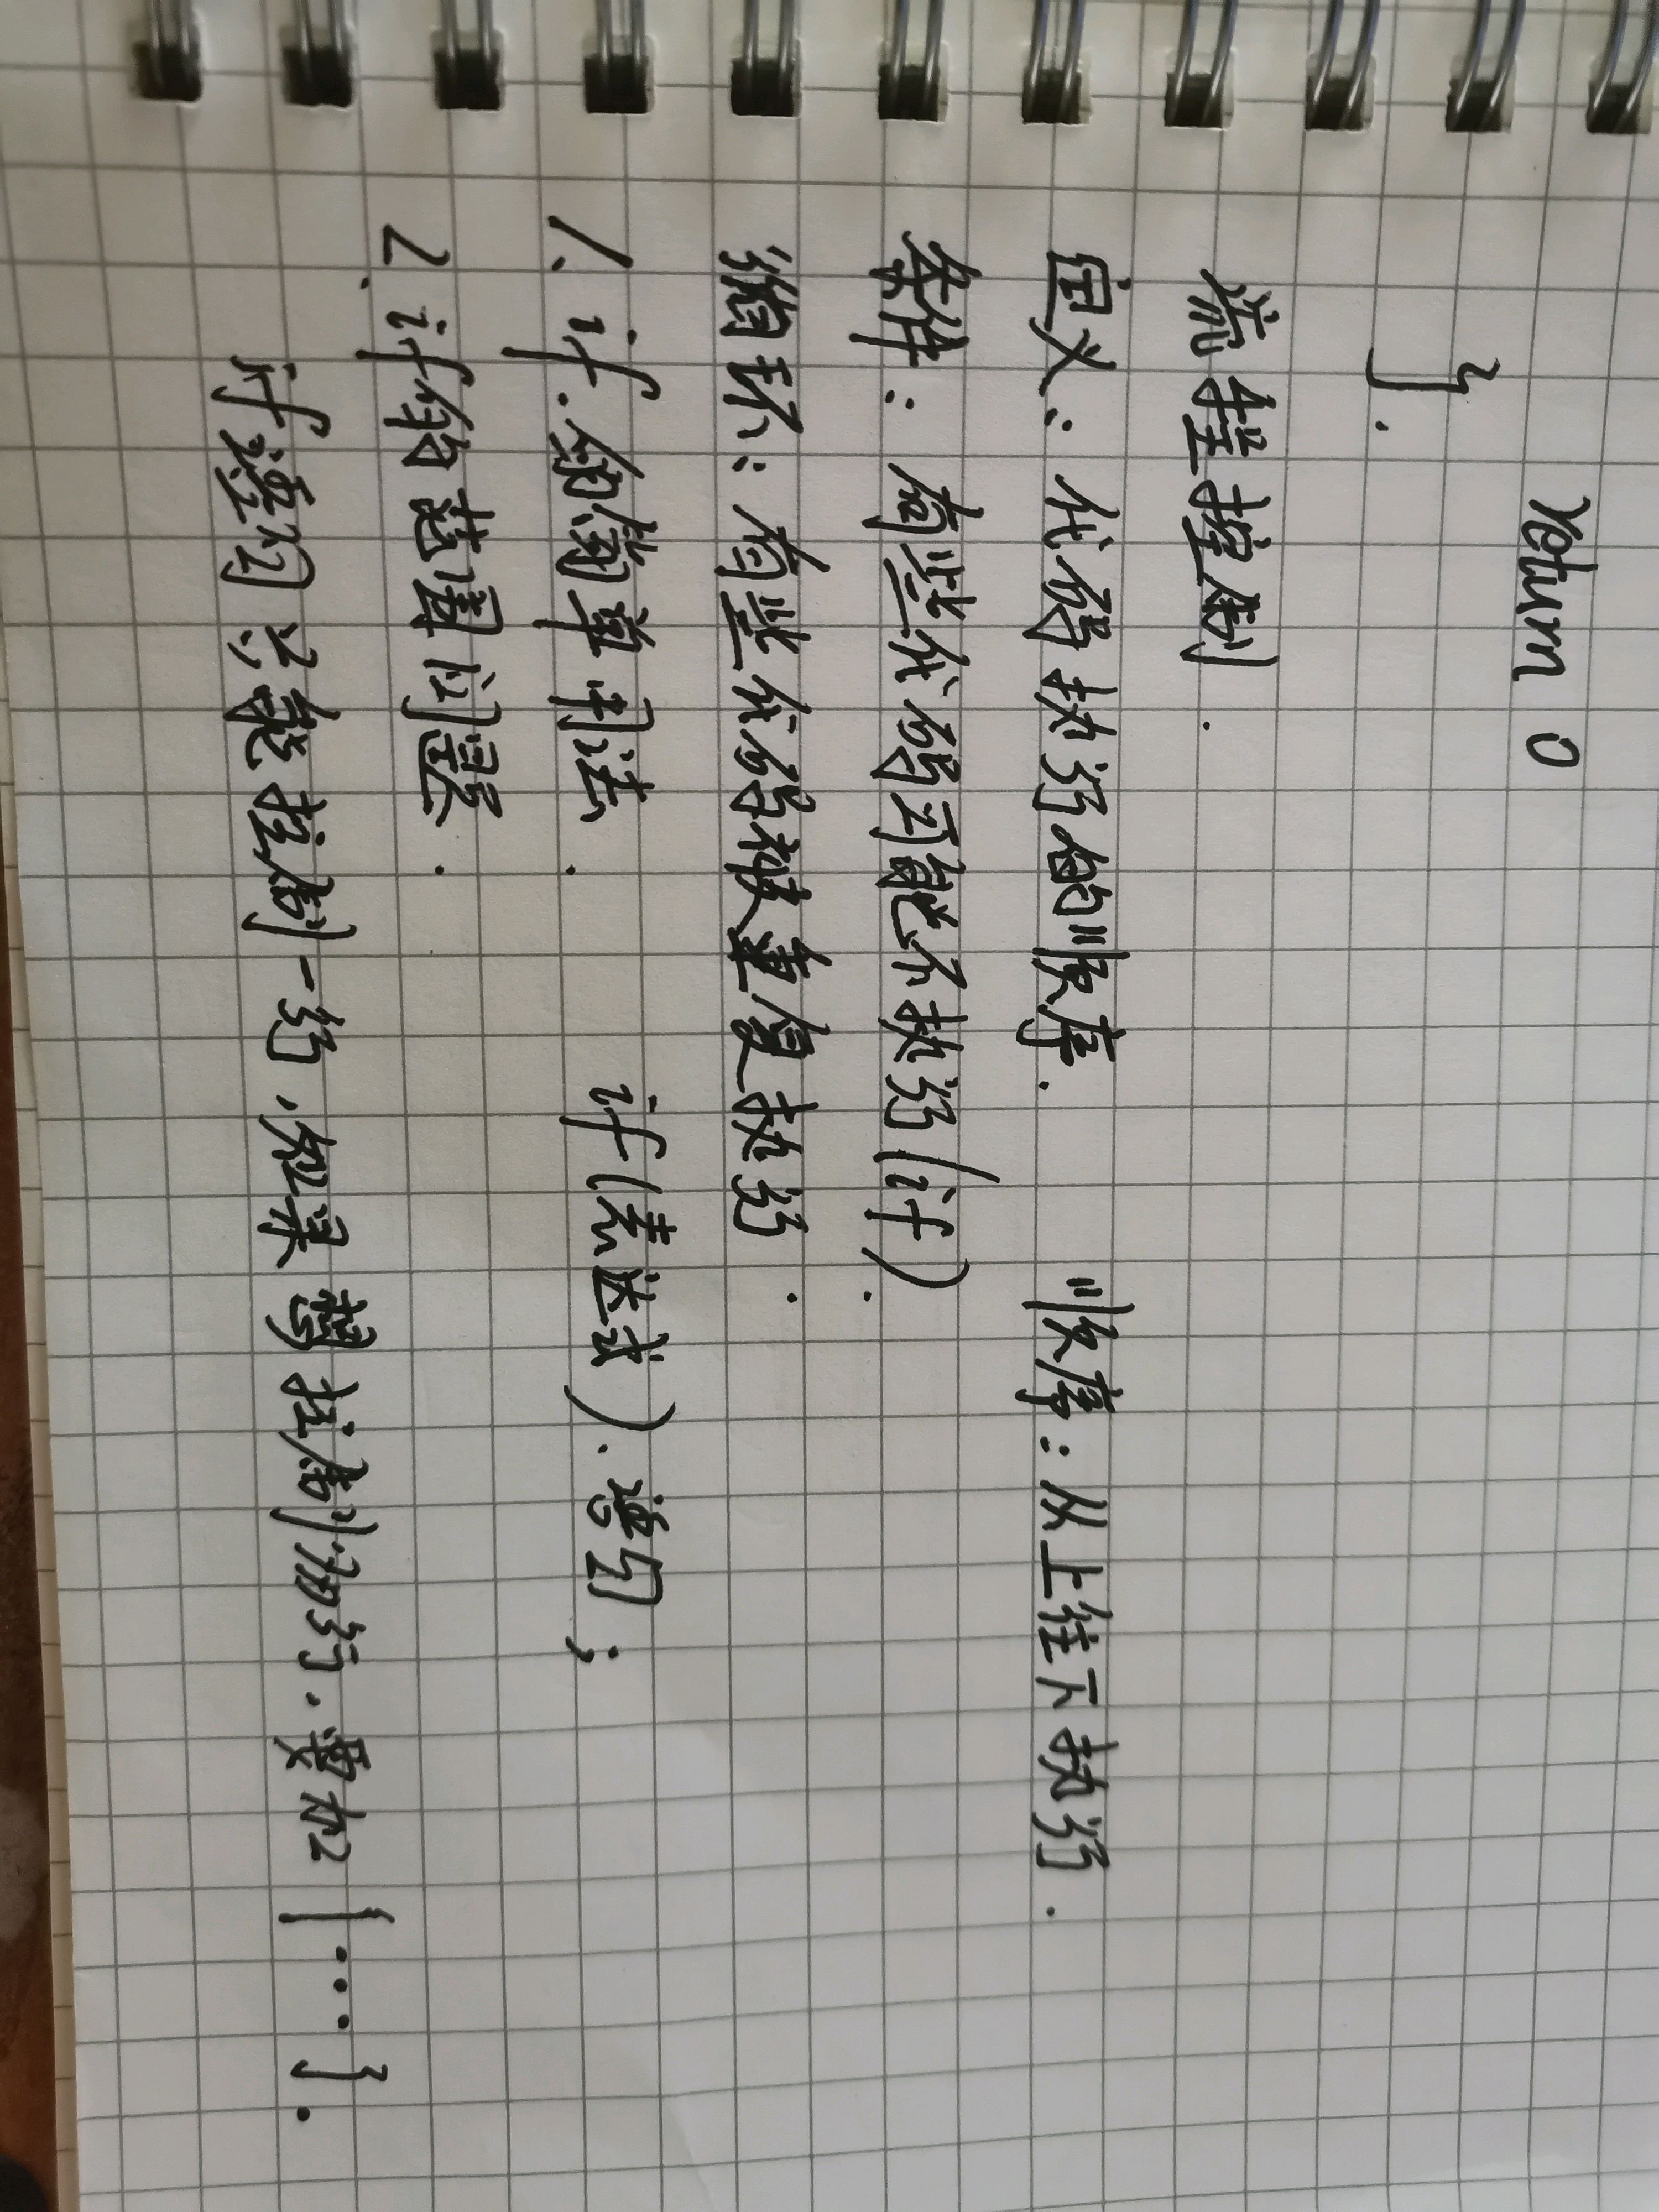 return 0
}.
流程控制.
定义：代码执行的顺序. 顺序：从上往下执行.
条件：有些代码可能不执行(if).
循环：有些代码被重复执行.
1、if.的简单用法. if(表达式).语句;
2、if的范围问题.
if语句只能控制一行,如果想控制多行.要加{...}.